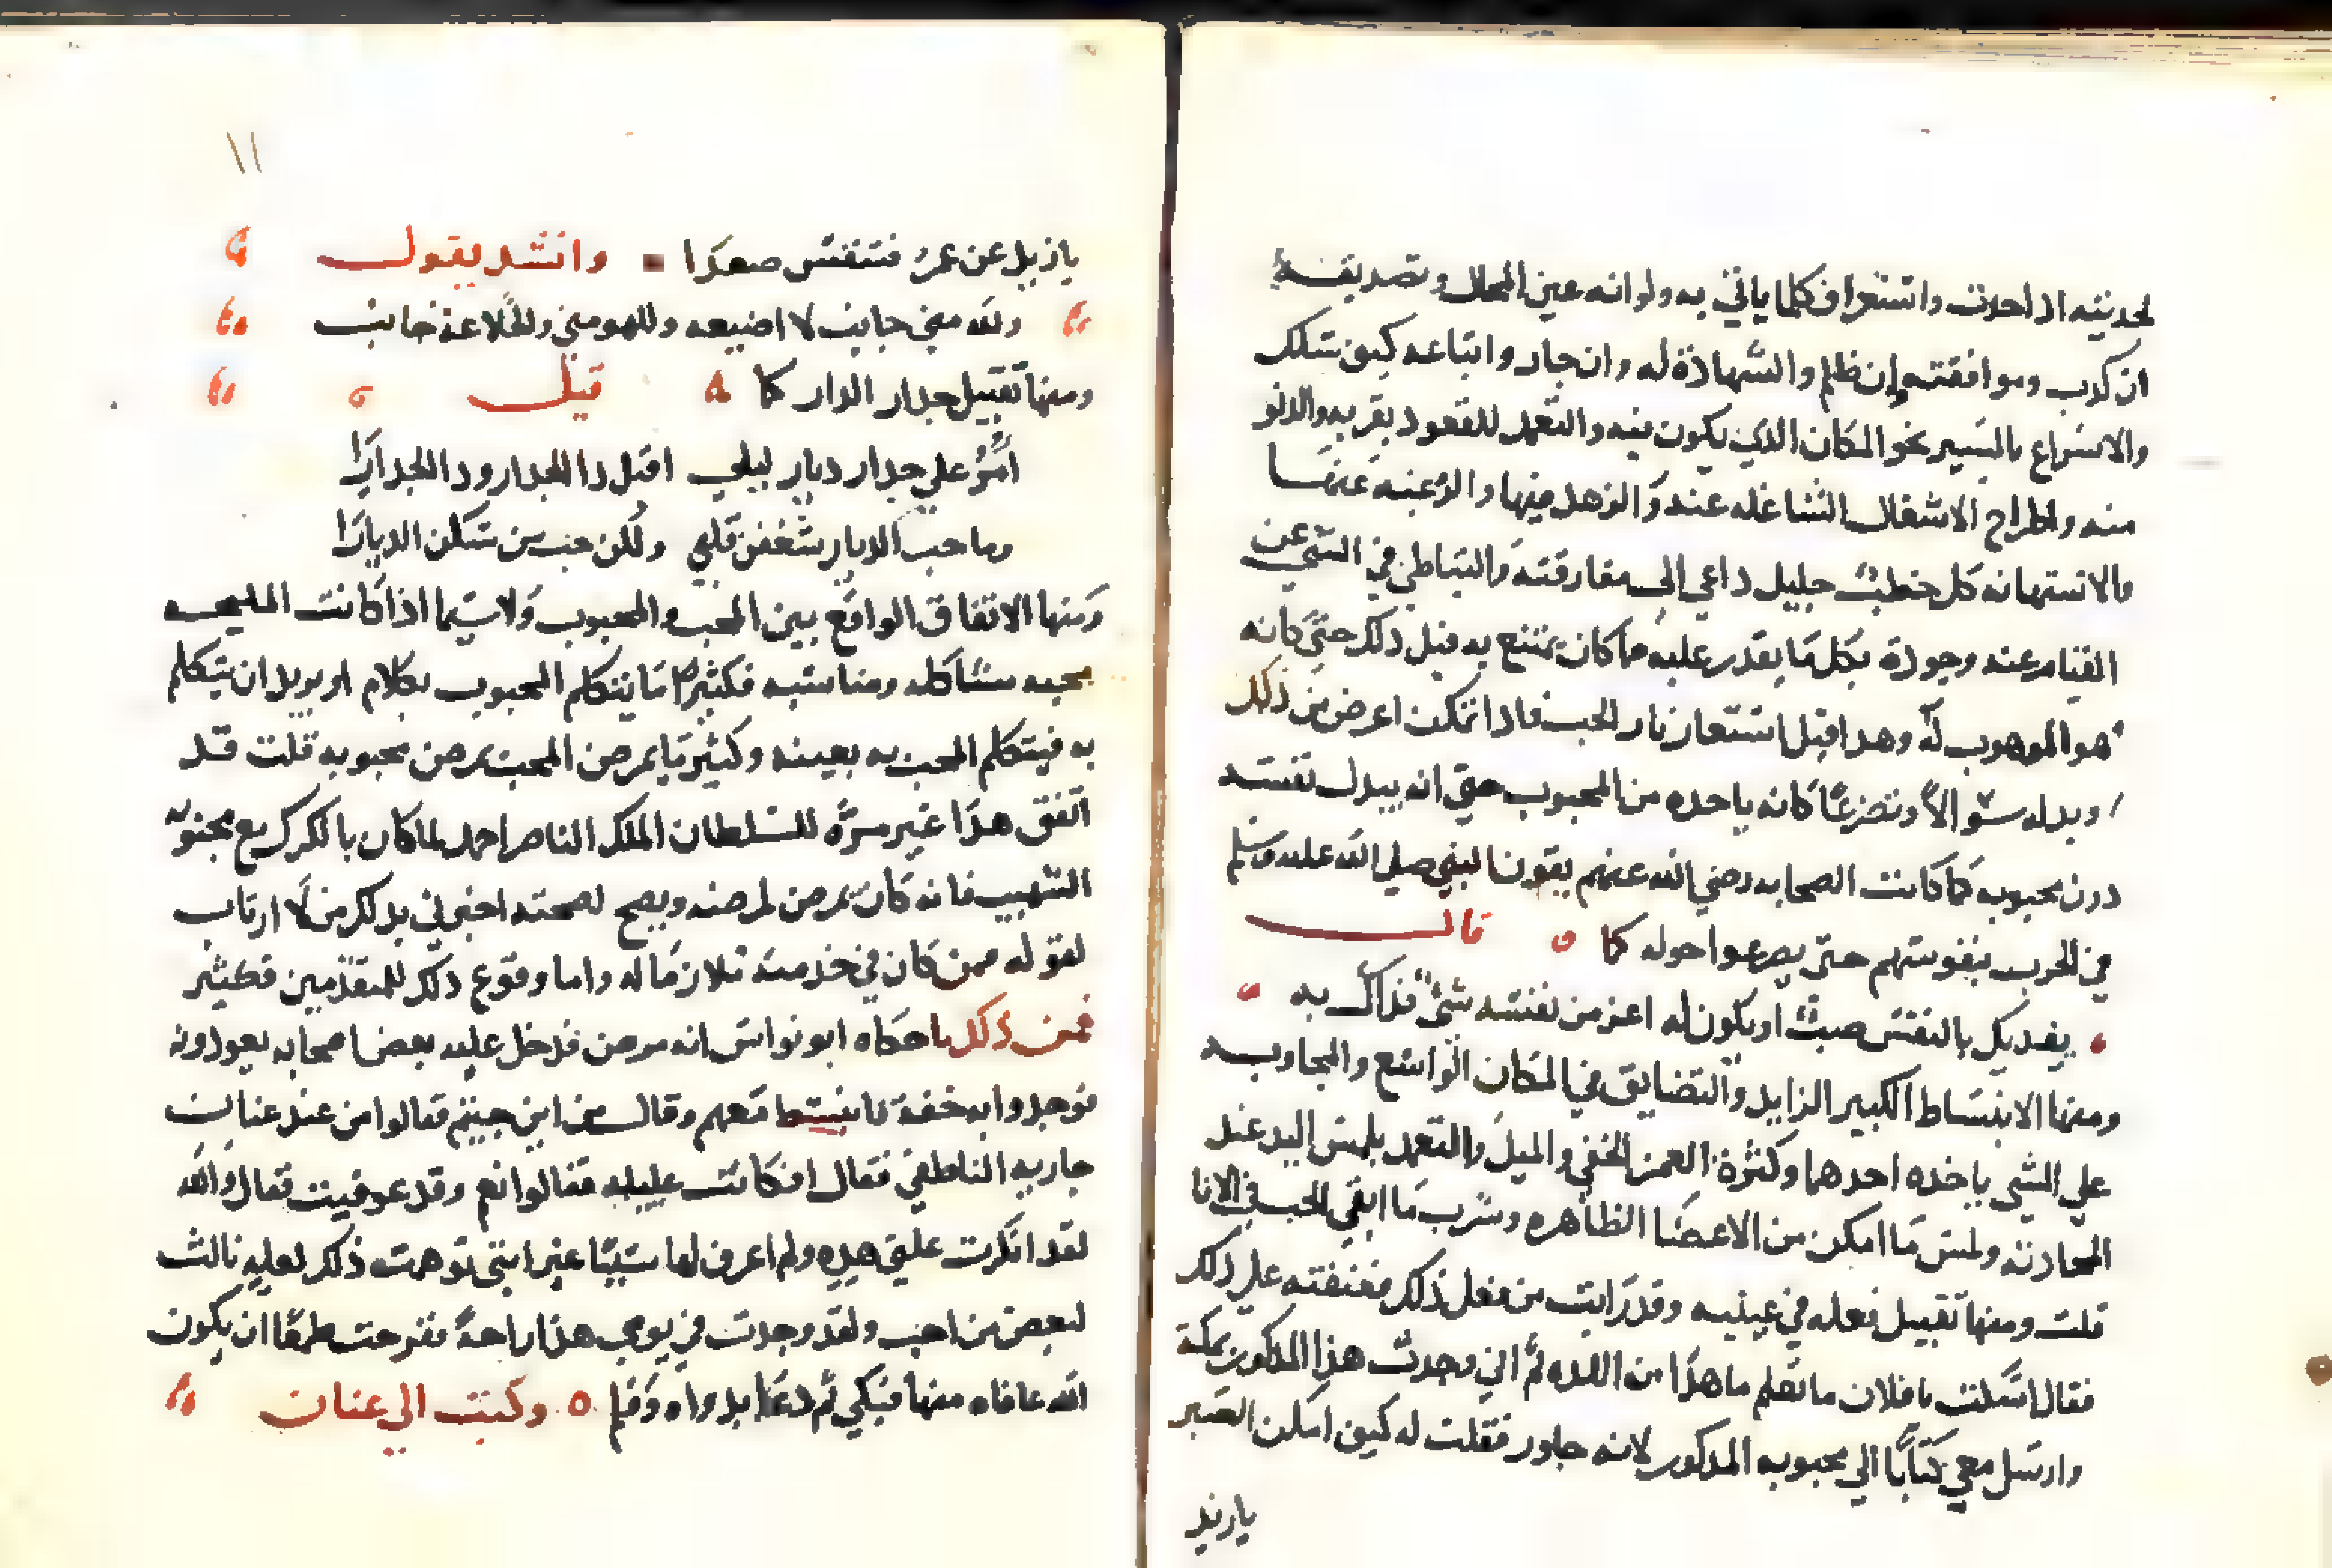 لحديثه اذا حدث واستغراب كلما ياتي به ولو انه عين المحال وتصديقه
ان كدب وموافقته وان ظلم والشهادة له وان جار واتباعه كيف سلك
والاسراع بالمسير نحو المكان الدي يكون فيه والتعمد للقعود بقربه والدنو
منه واطراح الاشغال الشاغله عنده والزهد فيها والرغبه عنها
والاستهانه كل خطب جليل داعي الى مفارقته والتباطي في المشي عن
القيام عنده وجودة بكل ما يقدر عليه مما كان يمتنع به قبل دلك حتى كانه
هو الموهوب له وهدا قبل استعار نار الحب فادا تمكن اعرض من ذلك
وبدله سؤالاً وتضرعاً كانه ياخده من المحبوب حتى انه يبدل نفسه
دون محبوبه كما كانت الصحابه رضي الله عنهم يقون النبي صلى الله عليه وسلم
في الحرب بنفوسهم حتى يصرعوا حوله كما قال
يفديك بالنفس صبٌّ او يكون له اعز من نفسه شيٌ فداك به
ومنها الانبساط الكبير الزايد والتضايق في المكان الواسع والمجادبه
علي الشي ياخده احدهما وكثرة الغمز الخفي والميل والتعمد بلمس اليد عند
المحادثه ولمس ما امكن من الاعضا الظاهره وشرب ما ابقى المحب في الانا
قلت ومنها تقبيل فعله في عينيه وقد رايت من فعل ذلك فعنفته علي دلك
فقال اسكت يا فلان ما تعلم ما هدا من اللده ثم اني وجدت هذا المدكور بمكة
وارسل معي كتابًا الي محبوبه المدكور لانه جاور فقلت له كيف امكن الصبر
يا زيد
١١
يا زيد عن عمرٍ فتنفس صعدا وانشد يقول
ولله مني جانب لا اضيعه وللهو مني وللخلاعة جانب
ومنها تقبيل جدار الدار كما قيل
امرُّ علي جدار ديار ليلي اقبل دا الجدار ودا الجدارا
وما حب الديار شغفن قلبي ولكن حب من سكن الديارا
ومنها الاتفاق الواقع بين المحب والمحبوب ولا سيما اذا كانت المحبه
محبه مشاكله ومناسبه فكثيرًا ما يتكلم المحبوب بكلام او يريد ان يتكلم
به فيتكلم المحب به بعينه وكثير ما يمرض المحب بمرض محبوبه قلت قد
اتفق هدا غير مرة للسلطان الملك الناصر احمد لما كان بالكرك مع محبوبه
الشهيب فانه كان يمرض لمرضه ويصح لصحته اخبرني بدلك من لا ارتاب
لقوله ممن كان في خدمته ملازمًا له واما وقوع دلك للمتقدمين فكثير
فمن ذلك ما حكاه ابو نواس انه مرض فدخل عليه بعض اصحابه يعودونه
فوجدوا به خفة فانبسط معهم وقال من اين جيتم فقالوا من عند عنان
جاريه الناطفي فقال او كانت عليله فقالوا نعم وقد عوفيت فقال والله
لقد انكرت علتي هده ولم اعرف لها سببًا غير انني توهمت ذلك لعله نالت
لبعض من احب ولقد وجدت في يومي هذا راحة ففرحت طمعًا ان يكون
الله عافاه منها قبلي ثم دعا بدواه وقلم وكتب الي عنان